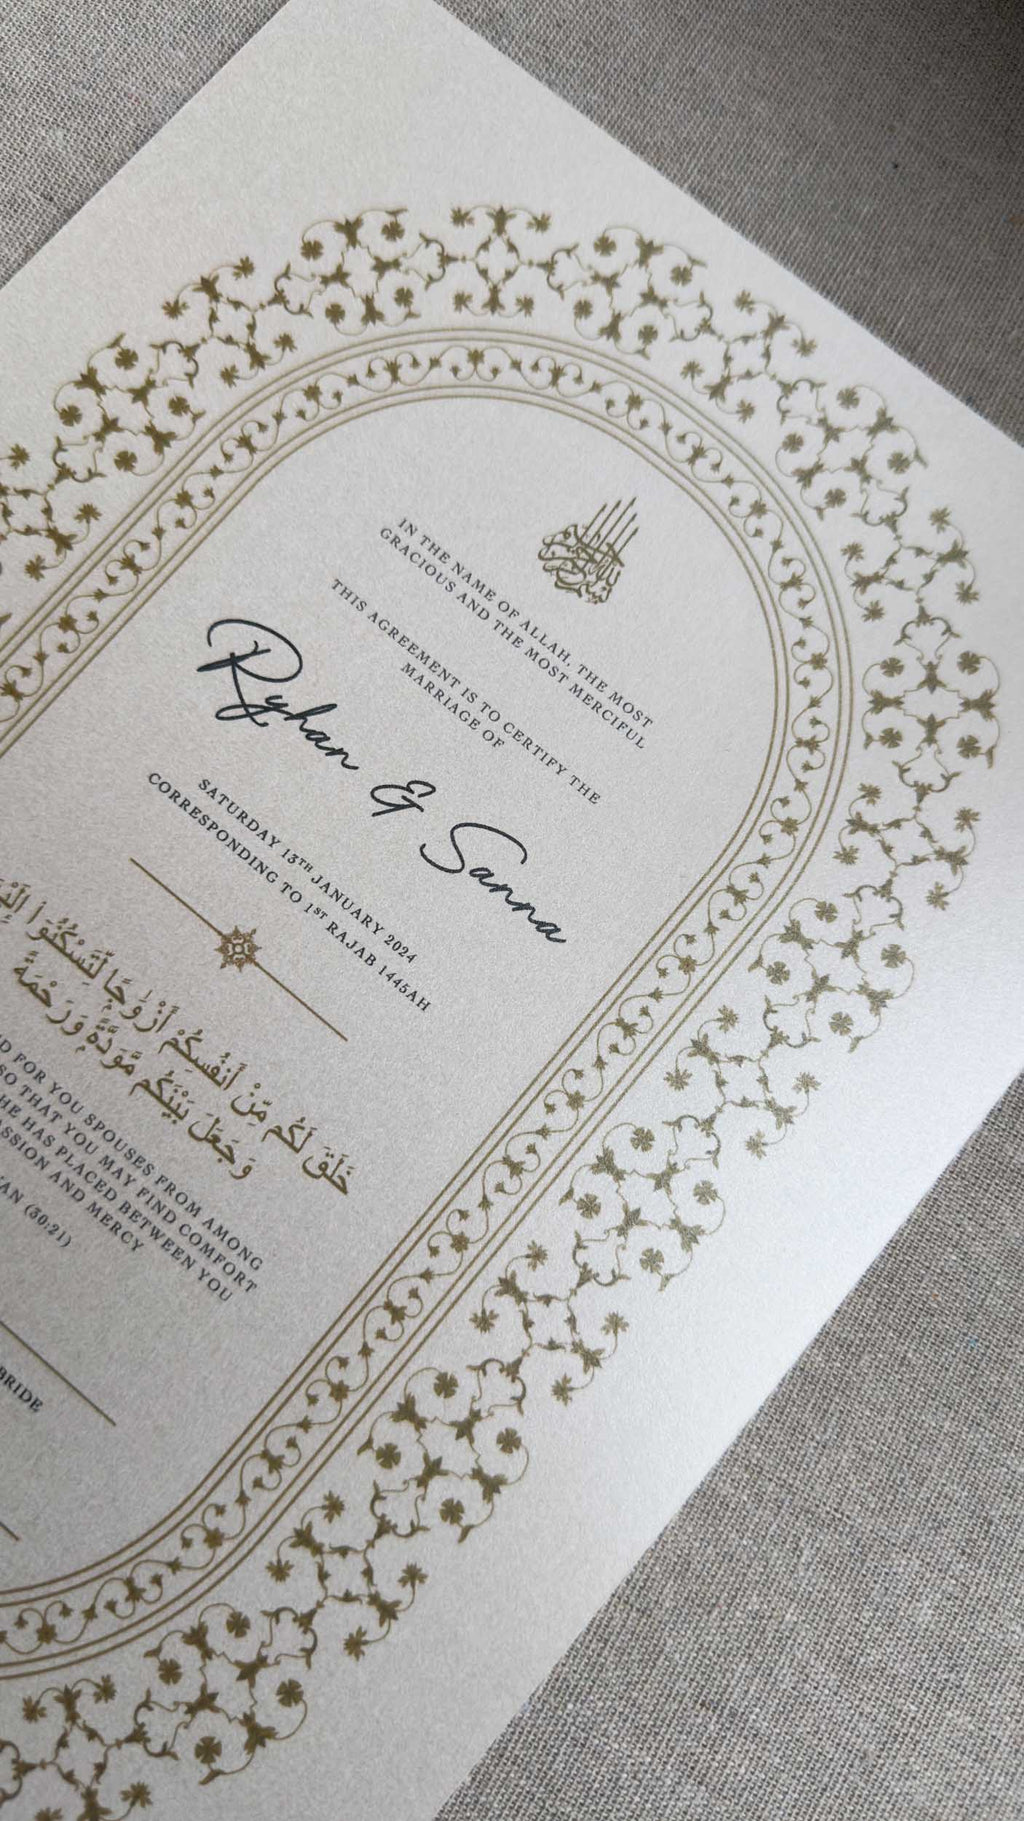 بسم الله الرحمن الرحيم
IN THE NAME OF ALLAH, THE MOST
GRACIOUS AND THE MOST MERCIFUL
THIS AGREEMENT IS TO CERTIFY THE
MARRIAGE OF
Ryhan & Sanna
SATURDAY 13TH JANUARY 2024
CORRESPONDING TO 1ST RAJAB 1445AH
خَلَقَ لَكُم مِّنْ أَنفُسِكُمْ أَزْوَٰجًا لِّتَسْكُنُوٓا۟
وَجَعَلَ بَيْنَكُم مَّوَدَّةً وَرَحْمَةً
FOR YOU SPOUSES FROM AMONG
SO THAT YOU MAY FIND COMFORT
HE HAS PLACED BETWEEN YOU
AND MERCY
(30:21)
BRIDE